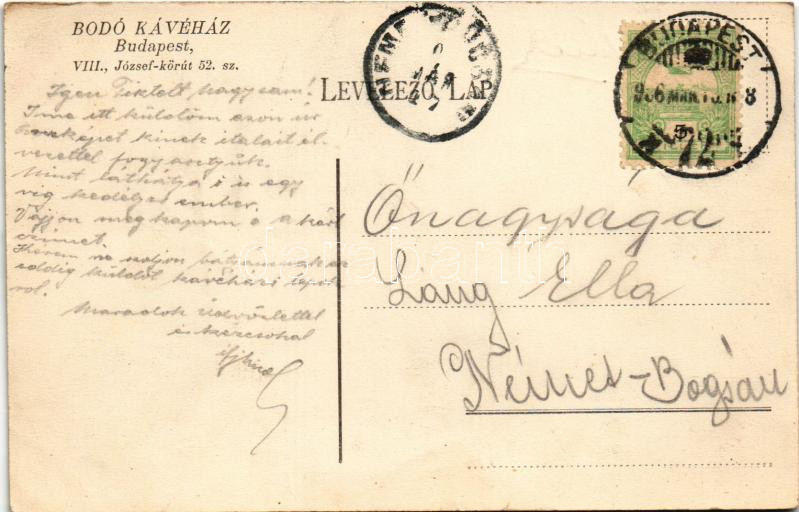 BODÓ KÁVÉHÁZ
Budapest,
VIII., József-körút 52. sz.
LEVELEZŐ LAP
BUDAPEST
5
72
Igen Tisztelt nagysám!
Ime itt küldöm azon úr
kinek italait él-
vezettel fogyasztjuk.
Mint láthatja ő is egy
vig kedélyes ember.
Vajjon megkapom e a kért
címet.
Kérem ne szóljon bátyámnak az
eddig küldöt kávéházi lapok
rol.
Maradok üdvözlettel
és kézcsokal
Őnagysága
Lang Ella
Német-Bogsán
darabanth